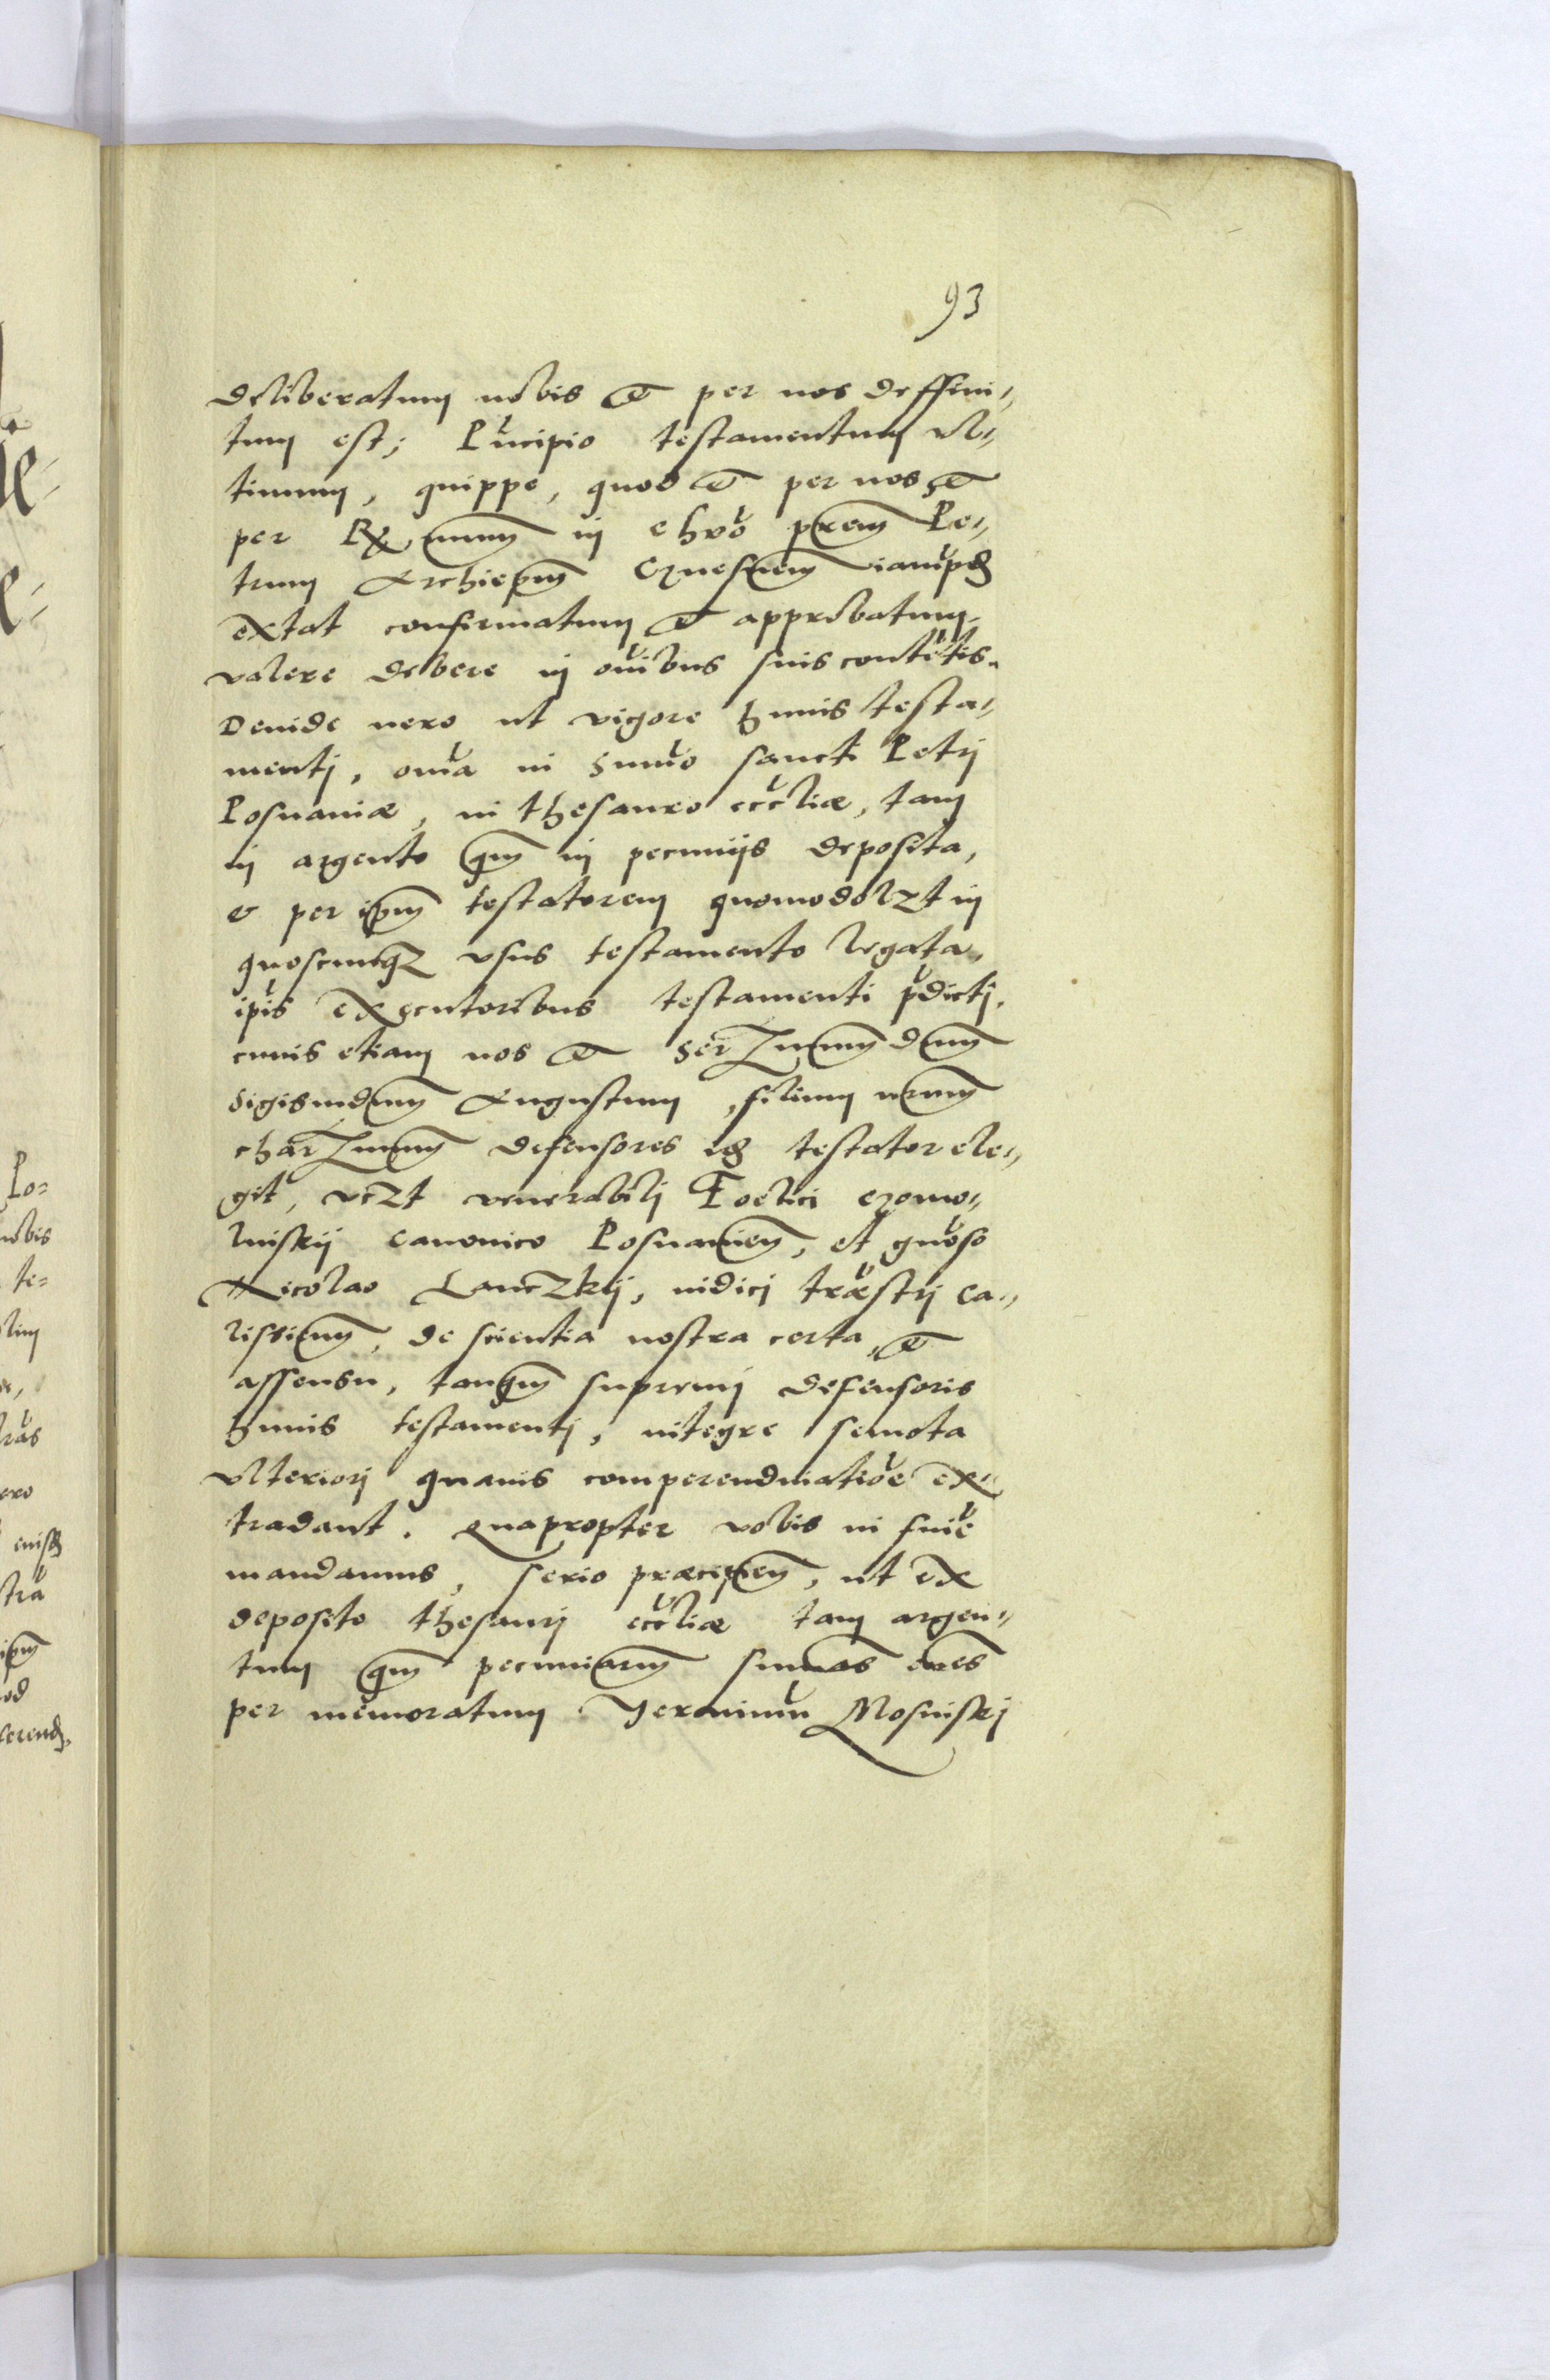 93
deliberatum nobis et per nos deffini„
tum est; Pncipio testamentum vl„
timum, quippe, quod et per nos, et
per Rx mum in chro prem Pe„
trum Archiepm Gnesnen iampd
extat confirmatum et approbatum,
valere debere in oibus suis contetis.
Deinde vero ut vigore huius testa„
menti, oia in summo sancti Petri
Posnaniæ, in thesauro eccliæ, tam
in argento qm in pecuniis deposita,
& per ipm testatorem quomodolzt in
quoscunqz vsus testamento legata,
ipis executoribus testamenti pdicti,
cuius etiam nos et Serzmum dnm
Sigismdum Augustum, filium nrum
charzmum defensores id testator ele„
git, vczt venerabili Foelici
canonico Posnanien, et gnoso
Nicolao Lanczkij, iudici træstri Ca„
lissien, de scientia nostra certa, et
assensu, tanqm supremi defensoris
huius testamenti, integre semota
vlteriori quavis comperendinatioe ex„
tradant. Quapropter vobis in suie
mandamus, serio præcipien, ut ex
deposito thesauri eccliæ tam argen„
tum qm pecuniarum summas oes
per memoratum Jeronimu Mosinskj
Po=
nobis
te=